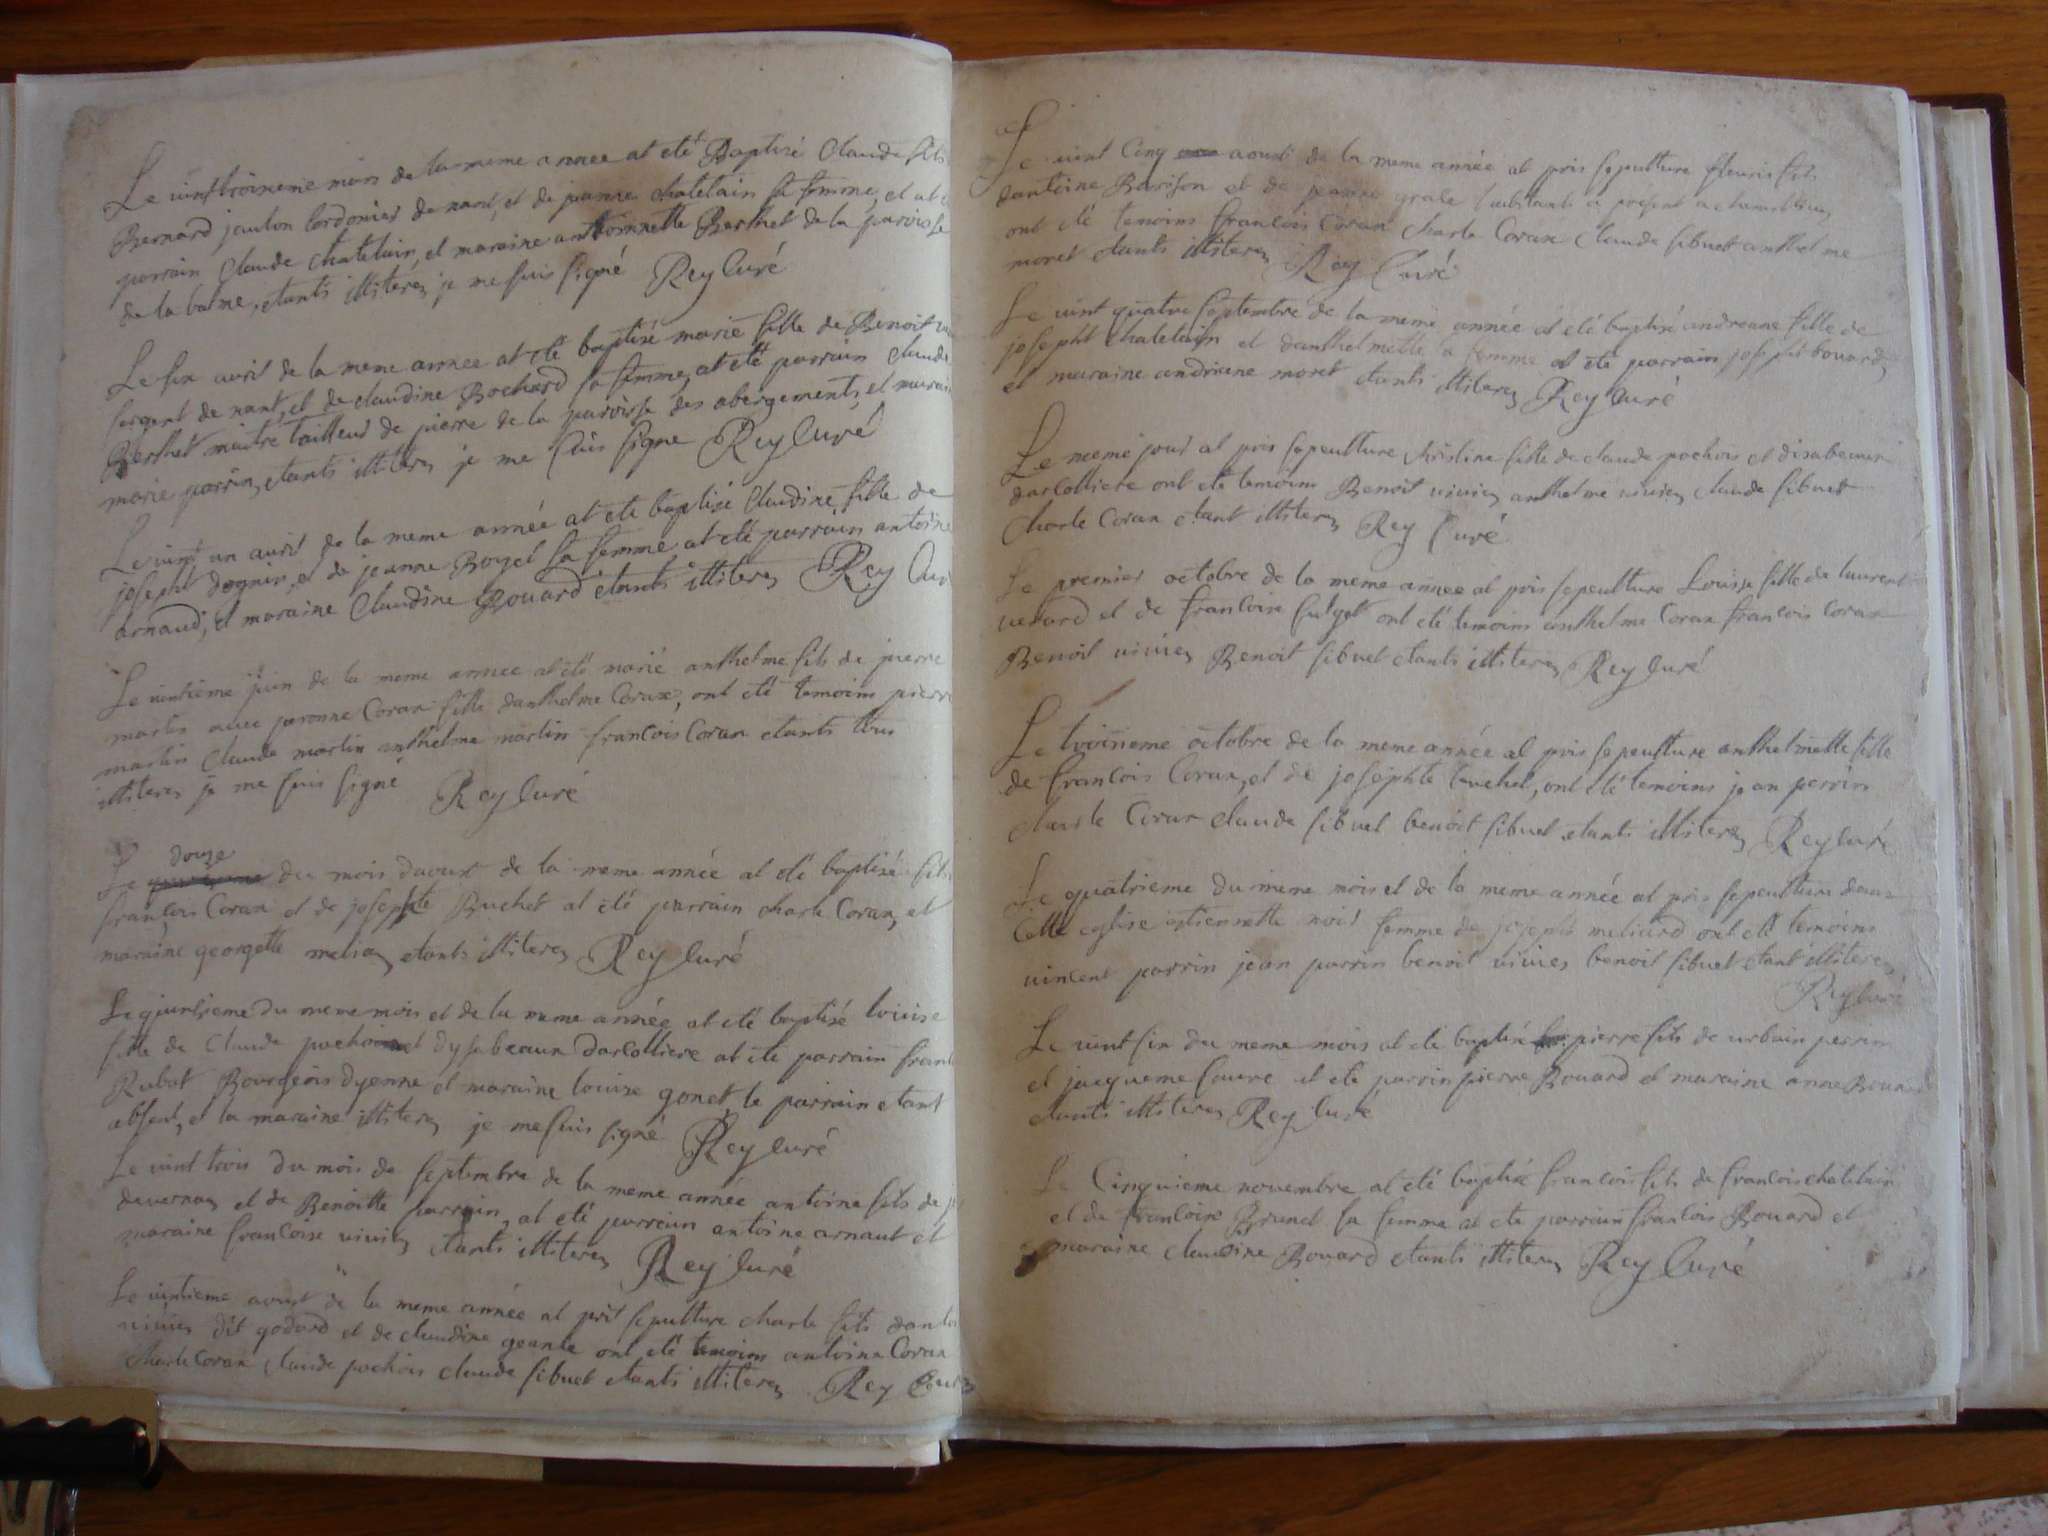 Le vint troisieme mars de la meme annee at eté Baptisé Claude fils
Bernard jaulon Cordonier de nant, et de jeanne chatelain sa femme, et at
parrain Claude chatelain, et maraine anthoinette Berthet de la paroisse
de la balme, etants illiteres je me suis signé Rey Curé
Le six avril de la meme annee at eté baptisé marie fille de Benoit
sergent de nant, et de claudine Bochard sa femme, at eté parrain claude
Berthet maitre tailleur de pierre de la paroisse des abergements, et marai
marie parrin, etants illiteres je me suis signe Rey Curé
Le vint un avril de la meme année at eté baptisé Claudine fille de
joseph dognin, et de jeanne Boget sa femme at eté parrain antoine
arnaud, et maraine Claudine Bouard etants illiteres Rey Cur
Le vintieme juin de la meme annee at eté marié anthelme fils de pierre
martin avec peronne Coran fille danthelme Coran, ont eté temoins pierre
martin Claude martin anthelme martin francois Coran etants tous
illiteres je me suis signé Rey Curé
douze
Le du mois daoust de la meme année at eté baptisé fils
francois Coran et de josephte Buchet at eté parrain charle Coran, et
maraine georgette melian etants illiteres Rey Curé
Le quinsieme du meme mois et de la meme année at eté baptisé louise
fille de Claude pochon et dysabeaux darcolliere at eté parrain fran
Rubat Bourgeois dyenne et maraine louise gonet, le parrain etant
absent, et la maraine illiteres je me suis signé Rey Curé
Le vint trois du mois de septembre de la meme année antoine fils de j
devernay et de Benoitte parrain, at eté parrain antoine arnaut et
maraine francoise vivien etants illiteres Rey Curé
Le vintieme aoust de la meme année at prit sepulture charle fils danto
vivien dit godard et de claudine ont eté temoins antoine Coran
charle Coran claude pochon claude sibuet etants illiteres Rey Curé
Le vint Cinq aoust de la meme année at pris sepulture fleuris fils
dantoine Barison et de jeanne habitants a present a
ont eté temoins francois Coran charle Coran claude sibuet anthelme
moret etants illiteres Rey Curé
Le vint quatre septembre de la meme année at eté baptisé andreane fille de
josepht chatelain et danthelmette sa femme at eté parrain josepht bouard,
et maraine andreane moret etants illiteres Rey Curé
Le meme jour at pris sepulture christine fille de claude pochon et disabeaux
darcolliere ont eté temoins Benoit vivien anthelme vivien claude sibuet
charle Coran etant illiteres Rey Curé
Le premier octobre de la meme annee at pris sepulture Louise fille de laurent
vetard et de francoise ont eté temoins anthelme Coran francois Coran
Benoit vivien Benoit sibuet etants illiteres Rey Curé
Le troisieme octobre de la meme année at pris sepulture anthelmette fille
de francois Coran, et de josephte buchet, ont eté temoins jean perrin
charle Coran claude sibuet benoit sibuet etants illiteres Rey Curé
Le quatrieme du meme mois et de la meme année at pris sepulture dans
Cette eglise estiennette femme de joseph meliard ont eté temoins
vincent parrin jean parrin benoit vivien benoit sibuet etant illiteres
Rey Curé
Le vint six du meme mois at eté baptisé pierre fils de urbain perrin
et jacqueme at eté parrin pierre Bouard et maraine anne Bouard
etants illiteres Rey Curé
Le Cinquieme novembre at eté baptisé francois fils de francois chatelain
et de francoise Brunet sa femme at eté parrain francois Bouard et
maraine claudine Bouard etants illiteres Rey Curé